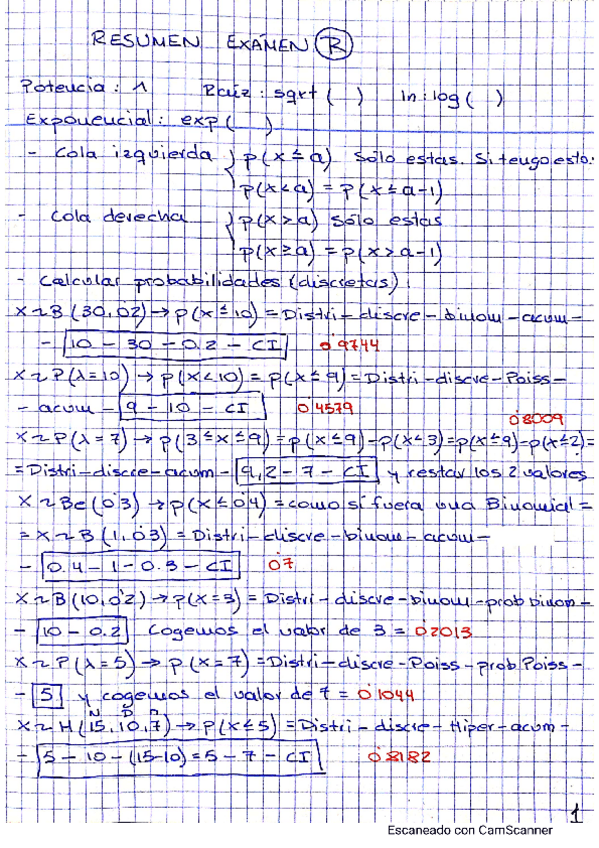 RESUMEN EXÁMEN R
Potencia: ^ Raíz: sqrt ( ) ln: log ( )
Exponencial: exp ( )
- Cola izquierda { p(x ≤ a) Sólo estas. Si tengo esto.
p(x < a) = p(x ≤ a-1)
- Cola derecha { p(x > a) Sólo estas
p(x ≥ a) = p(x > a-1)
- Calcular probabilidades (discretas):
X ~ B (30, 0'2) → p(x ≤ 10) = Distri-discre-binom-acum-
- 10 - 30 - 0.2 - CI 0'9744
X ~ P(λ=10) → p(x<10) = p(x ≤ 9) = Distri-discre-Poiss-
- acum - 9 - 10 - CI 0'4579
0'8009
X ~ P(λ=7) → p(3 ≤ x ≤ 9) = p(x ≤ 9) - p(x < 3) = p(x ≤ 9) - p(x ≤ 2) =
= Distri-discre-acum - 9,2 - 7 - CI y restar los 2 valores
X ~ Be (0'3) → p(x ≤ 0'4) = como si fuera una Binomial =
= X ~ B (1, 0'3) = Distri-discre-binom-acum-
- 0.4 - 1 - 0.3 - CI 0'7
X ~ B (10, 0'2) → p(x=3) = Distri-discre-binom-prob binom-
- 10 - 0.2 Cogemos el valor de 3 = 0'2013
X ~ P(λ=5) → p(x=7) = Distri-discre-Poiss-prob Poiss-
- 5 y cogemos el valor de 7 = 0'1044
N D n
X ~ H (15, 10, 7) → p(x ≤ 5) = Distri-discre-Hiper-acum-
- 5 - 10 - (15-10) = 5 - 7 - CI 0'8182
1
Escaneado con CamScanner